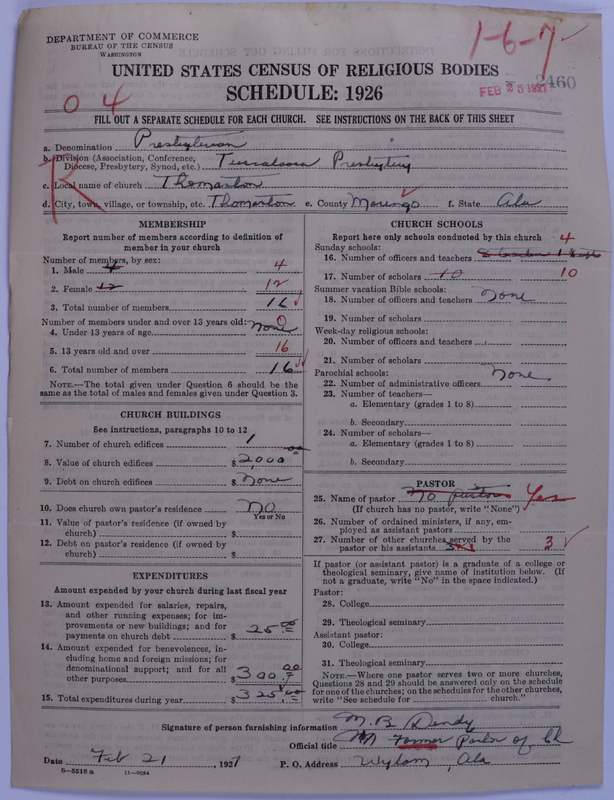 DEPARTMENT OF COMMERCE
BUREAU OF THE CENSUS
WASHINGTON
1-6-7
2460
FEB 25 1927
UNITED STATES CENSUS OF RELIGIOUS BODIES
SCHEDULE: 1926
04
FILL OUT A SEPARATE SCHEDULE FOR EACH CHURCH. SEE INSTRUCTIONS ON THE BACK OF THIS SHEET
R
a. Denomination Presbyterian
b. Division (Association, Conference, Diocese, Presbytery, Synod, etc.) Tuscaloosa Presbytery
c. Local name of church Thomaston
d. City, town, village, or township, etc. Thomaston e. County Marengo f. State Ala
MEMBERSHIP
Report number of members according to definition of
member in your church
Number of members, by sex:
1. Male 4 4
2. Female 12 12
3. Total number of members 16
Number of members under and over 13 years old: 0
4. Under 13 years of age None
5. 13 years old and over 16
6. Total number of members 16
NOTE.—The total given under Question 6 should be the
same as the total of males and females given under Question 3.
CHURCH BUILDINGS
See instructions, paragraphs 10 to 12
7. Number of church edifices 1
8. Value of church edifices $2000 00
9. Debt on church edifices $None
10. Does church own pastor's residence No
Yes or No
11. Value of pastor's residence (if owned by
church) $
12. Debt on pastor's residence (if owned by
church) $
EXPENDITURES
Amount expended by your church during last fiscal year
13. Amount expended for salaries, repairs,
and other running expenses; for im-
provements or new buildings; and for
payments on church debt $25.00
14. Amount expended for benevolences, in-
cluding home and foreign missions; for
denominational support; and for all
other purposes $300.00
15. Total expenditures during year $325.00
CHURCH SCHOOLS
Report here only schools conducted by this church
Sunday schools: 4
16. Number of officers and teachers
17. Number of scholars 10 10
Summer vacation Bible schools:
18. Number of officers and teachers None
19. Number of scholars
Week-day religious schools:
20. Number of officers and teachers
21. Number of scholars
Parochial schools: None
22. Number of administrative officers
23. Number of teachers—
a. Elementary (grades 1 to 8)
b. Secondary
24. Number of scholars—
a. Elementary (grades 1 to 8)
b. Secondary
PASTOR
25. Name of pastor No pastor Yes
(If church has no pastor, write "None")
26. Number of ordained ministers, if any, em-
ployed as assistant pastors
27. Number of other churches served by the
pastor or his assistants 3
If pastor (or assistant pastor) is a graduate of a college or
theological seminary, give name of institution below. (If
not a graduate, write "No" in the space indicated.)
Pastor:
28. College
29. Theological seminary
Assistant pastor:
30. College
31. Theological seminary
NOTE.—Where one pastor serves two or more churches,
Questions 28 and 29 should be answered only on the schedule
for one of the churches; on the schedules for the other churches,
write "See schedule for church."
Signature of person furnishing information M. B. Dendy
Official title Former Pastor of Ch
Date Feb 21, 1927 P. O. Address Wylam, Ala
8-5518 a 11-9084